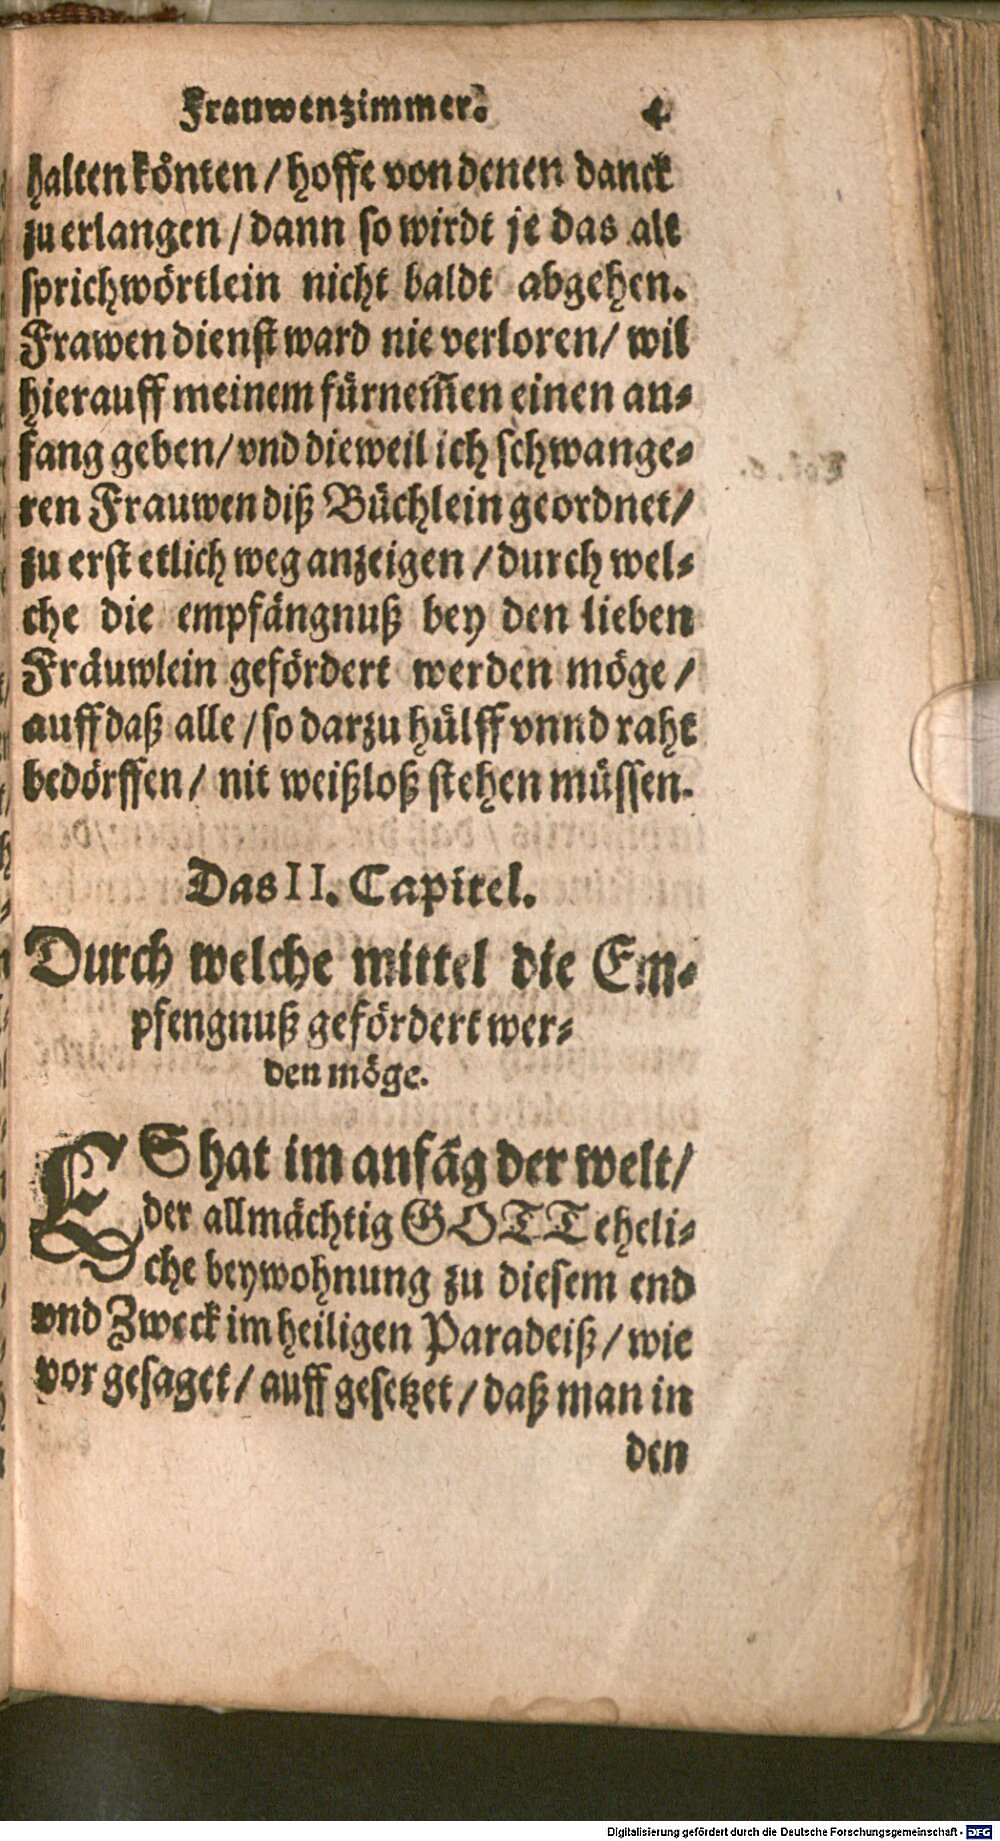 Frauwenzimmer. 4
halten könten / hoffe von denen danck
zu erlangen / dann so wirdt je das alt
sprichwörtlein nicht baldt abgehen.
Frawen dienst ward nie verloren / wil
hierauff meinem fürnem̃en einen an⸗
fang geben / vnd dieweil ich schwange⸗
ren Frauwen diß Büchlein geordnet /
zu erst etlich weg anzeigen / durch wel⸗
che die empfängnuß bey den lieben
Fräuwlein gefördert werden möge /
auff daß alle / so darzu hülff vnnd raht
bedörffen / nit weißloß stehen müssen.
Das II. Capitel.
Durch welche mittel die Em⸗
pfengnuß gefördert wer⸗
den möge.
ES hat im anfãg der welt /
der allmächtig GOTT eheli⸗
che beywohnung zu diesem end
vnd Zweck im heiligen Paradeiß / wie
vor gesaget / auff gesetzet / daß man in
den
Digitalisierung gefördert durch die Deutsche Forschungsgemeinschaft - DFG